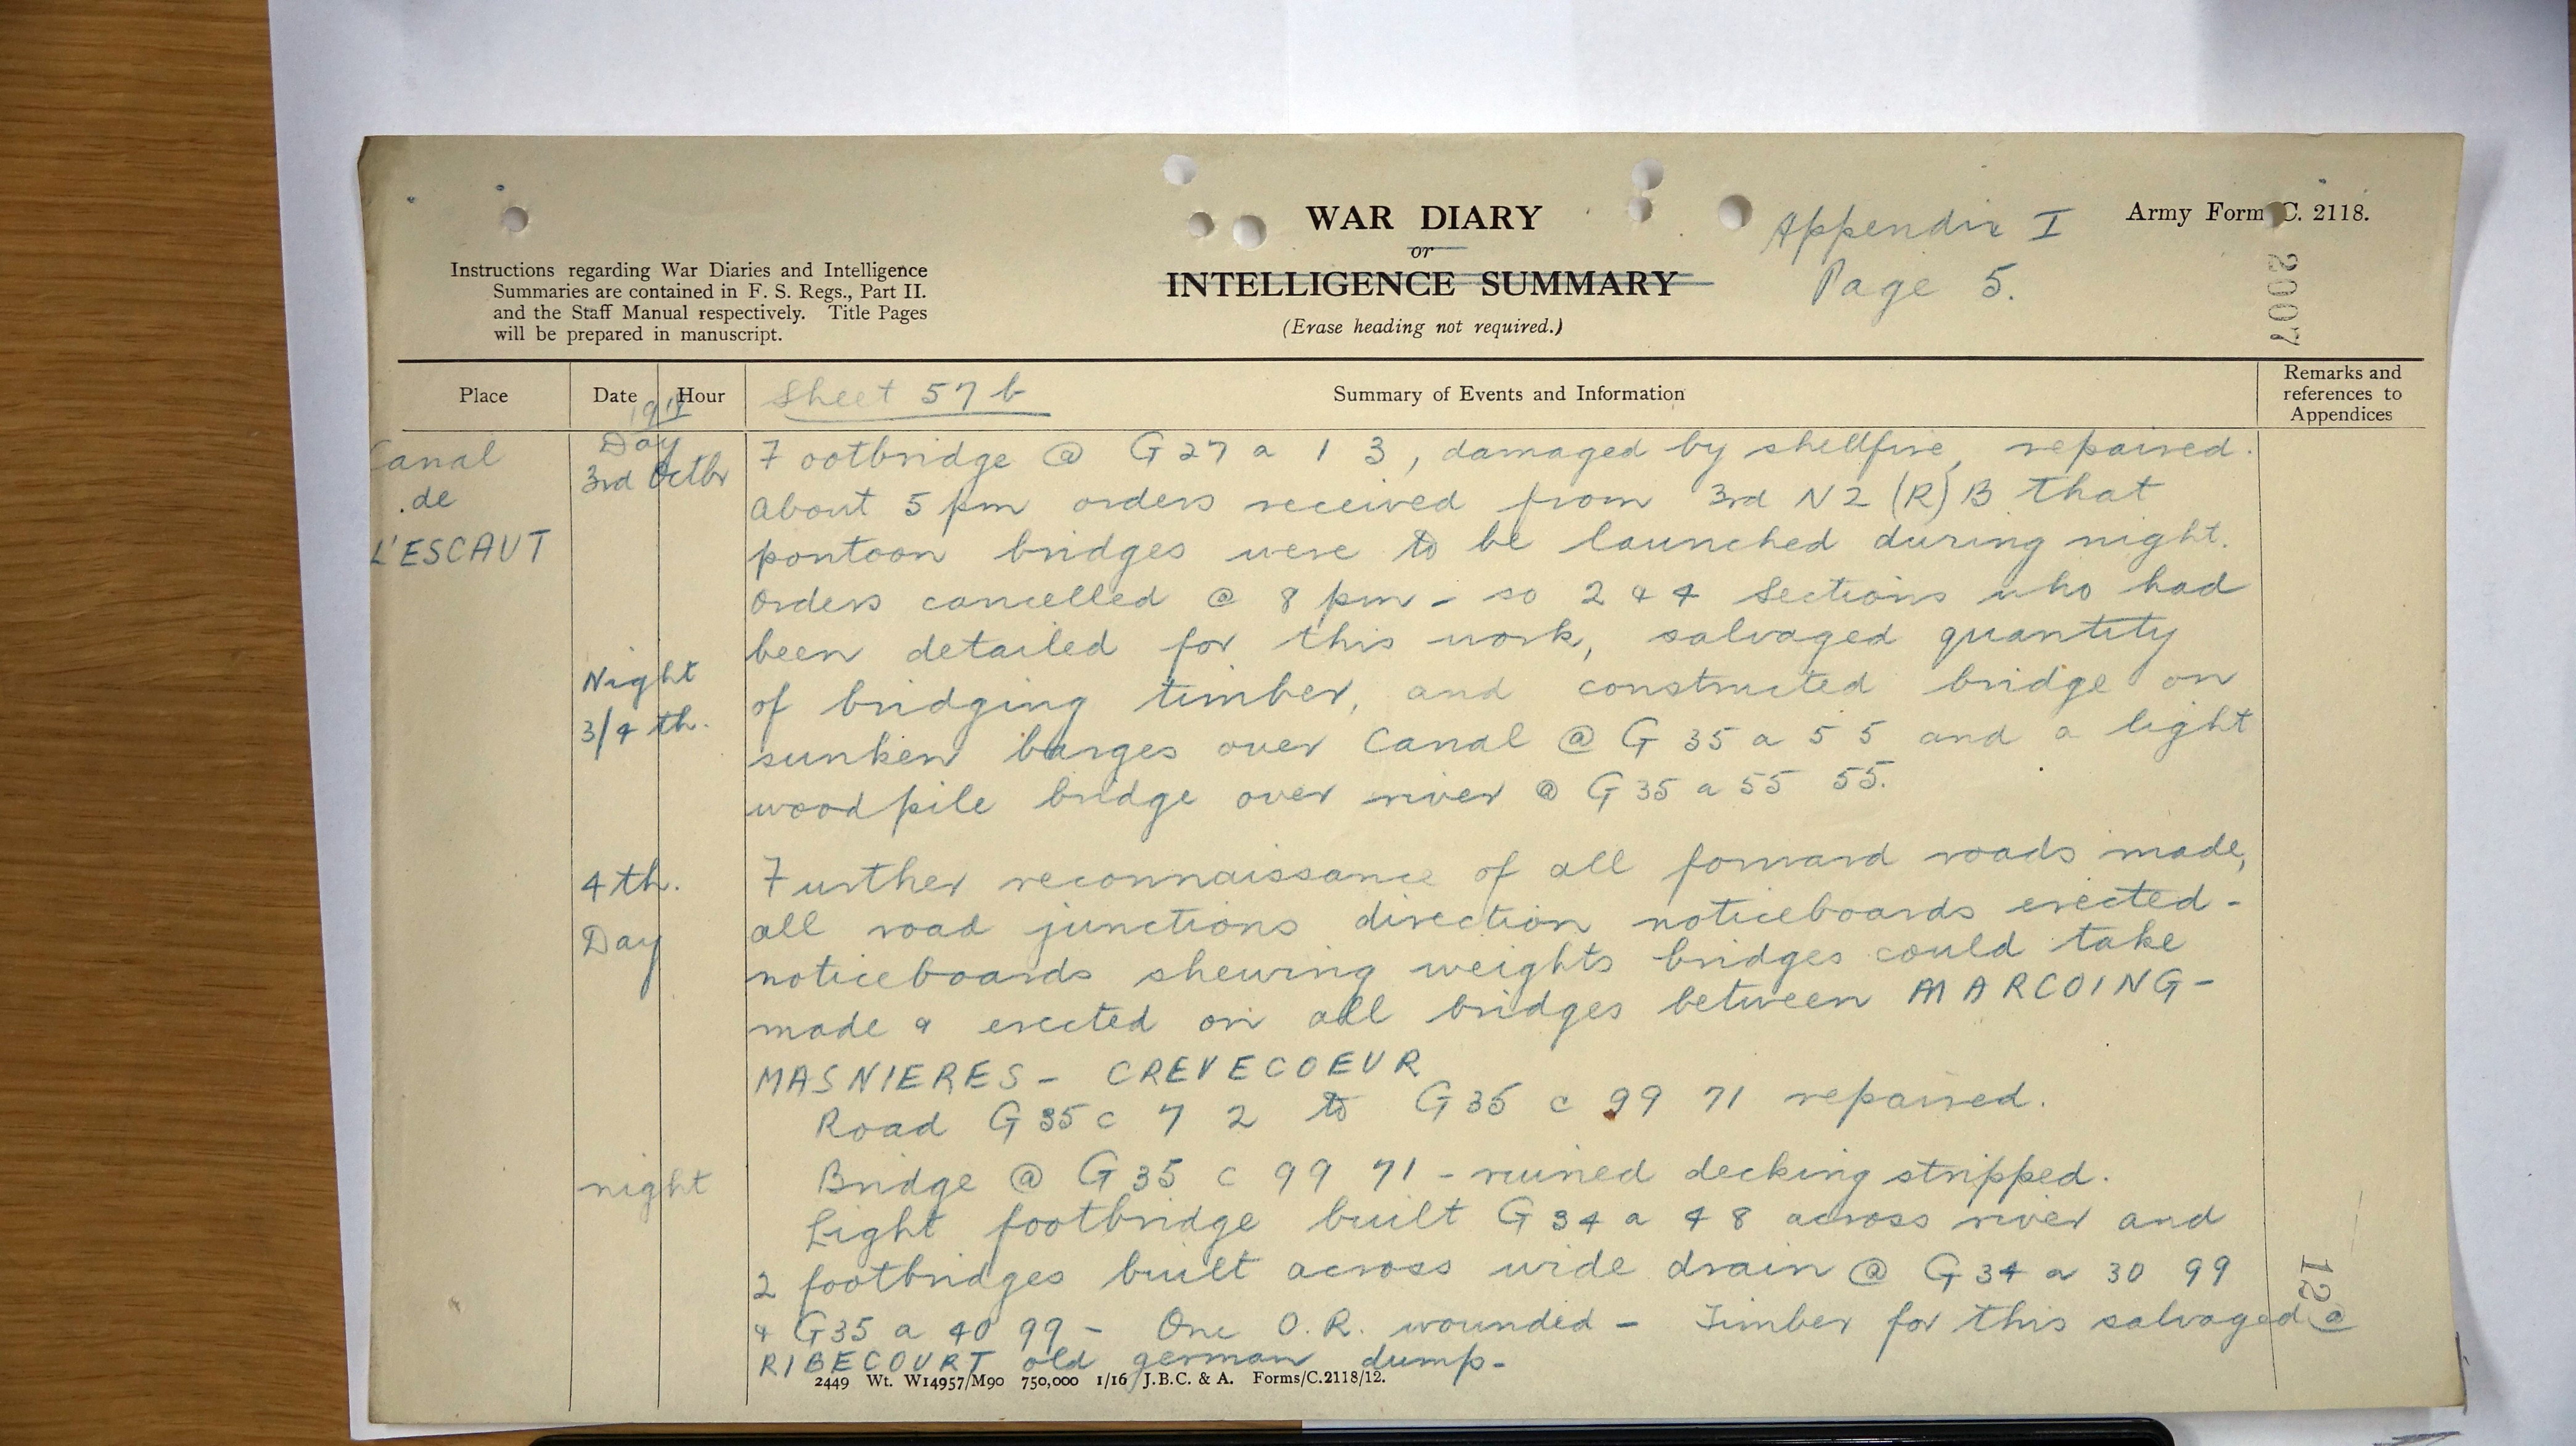 WAR DIARY
or
INTELLIGENCE SUMMARY
(Erase heading not required.)
Appendix I
Page 5.
Army Form C. 2118.
2007
Instructions regarding War Diaries and Intelligence
Summaries are contained in F. S. Regs., Part II.
and the Staff Manual respectively. Title Pages
will be prepared in manuscript.
Place
Date
Hour
Sheet 57 b
Summary of Events and Information
Remarks and
references to
Appendices
Canal
de
L'ESCAUT
Day
3rd Octbr
Footbridge @ G 27 a 1 3, damaged by shellfire, repaired.
About 5 pm orders received from 3rd NZ (R) B that
pontoon bridges were to be launched during night.
Orders cancelled @ 8 pm - so 2 & 4 Sections who had
been detailed for this work, salvaged quantity
Night
3/4 th.
of bridging timber, and constructed bridge on
sunken barges over Canal @ G 35 a 5 5 and a light
woodpile bridge over river @ G 35 a 55 55.
4 th.
Day
Further reconnaissance of all forward roads made,
all road junctions direction noticeboards erected -
noticeboards shewing weights bridges could take
made & erected on all bridges between MARCOING -
MASNIERES - CREVECOEUR
Road G 35 c 7 2 to G 35 c 99 71 repaired.
night
Bridge @ G 35 c 99 71 - ruined decking stripped.
Light footbridge built G 34 a 4 8 across river and
2 footbridges built across wide drain @ G 34 a 30 99
& G 35 a 40 99 - One O.R. wounded - Timber for this salvaged @
RIBECOURT old german dump -
12
2449 Wt. W14957/M90 750,000 1/16 J.B.C. & A. Forms/C.2118/12.